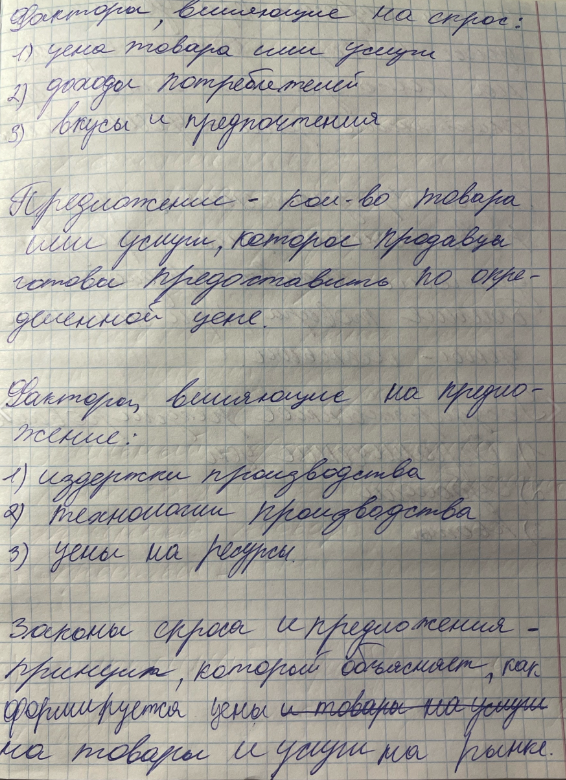 Факторы, влияющие на спрос:
1) цена товара или услуги
2) доходы потребителей
3) вкусы и предпочтения
Предложение - кол-во товара
или услуги, которое продавцы
готовы предоставить по опре-
деленной цене.
Факторы, влияющие на предло-
жение:
1) издержки производства
2) технологии производства
3) цены на ресурсы.
Законы спроса и предложения -
принцип, который объясняет, как
формируется цены и товары на услуги
на товары и услуги на рынке.